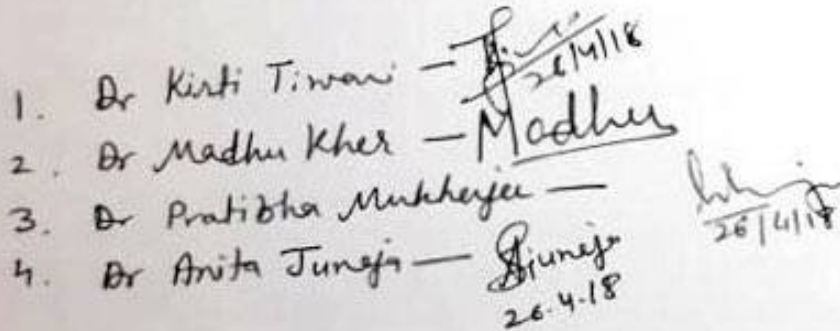 1. Dr Kirti Tiwari — 26/4/18
2. Dr Madhu Kher — Madhu
3. Dr Pratibha Mukherjee — 26/4/18
4. Dr Anita Juneja — AJuneja
26.4.18